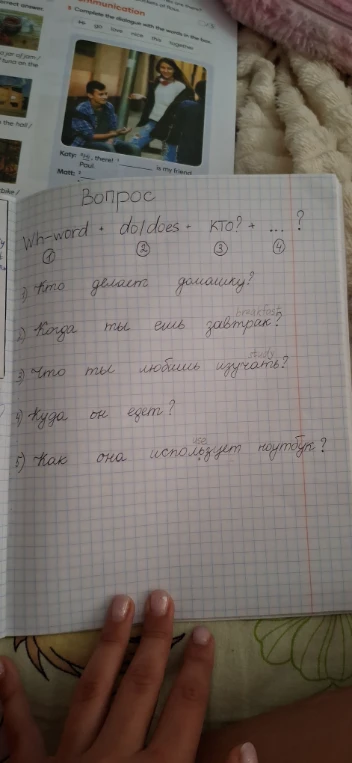 mmunication
Complete the dialogue with the words in the box.
Katy: , there! ¹ is my friend
Paul.
Matt: ²
Вопрос
Wh-word + do/does + кто? + ... ?
① ② ③ ④
1) Кто делает домашку?
breakfast
2) Когда ты ешь завтрак?
study
3) Что ты любишь изучать?
4) Куда он едет?
use
5) Как она использует ноутбук?